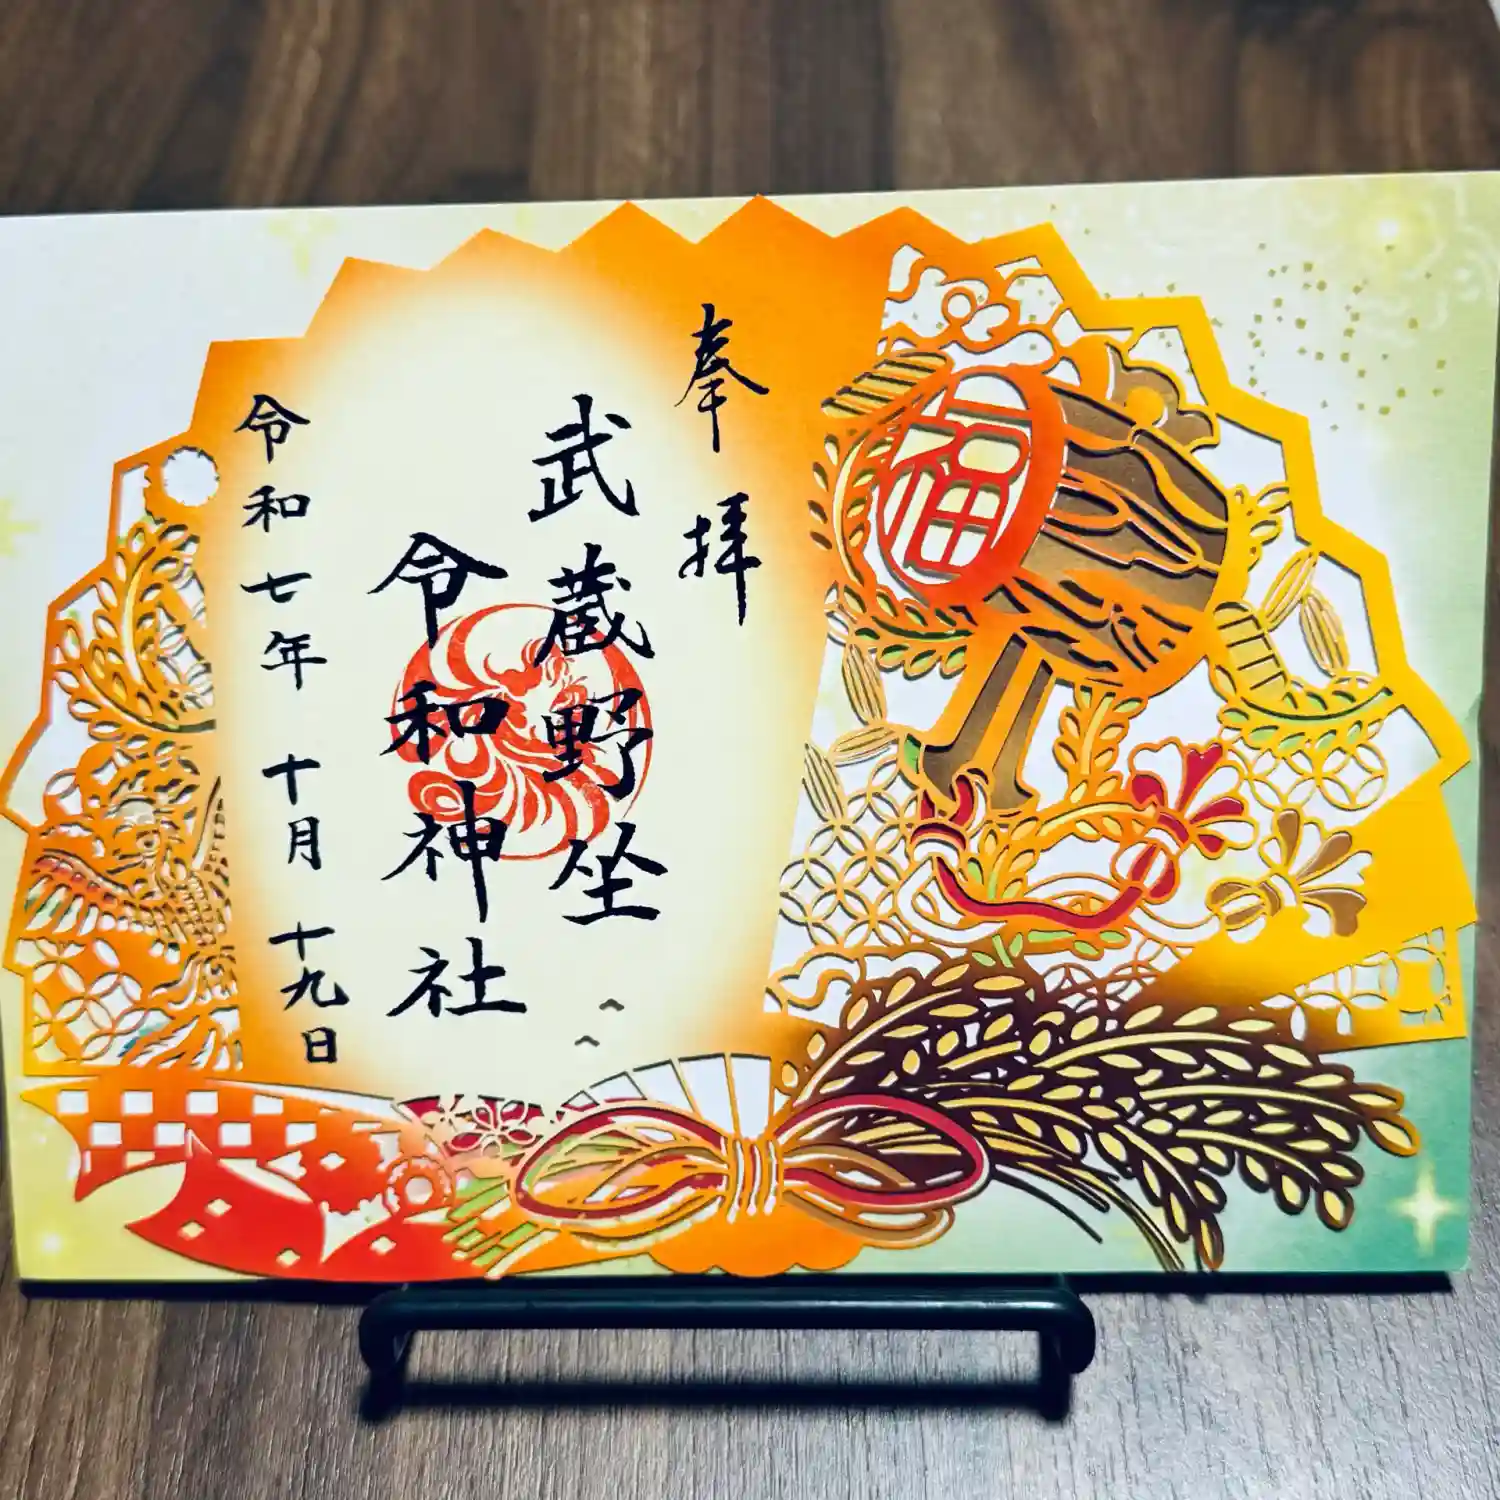 奉拝
武蔵野坐
令和神社
令和七年十月十九日
福